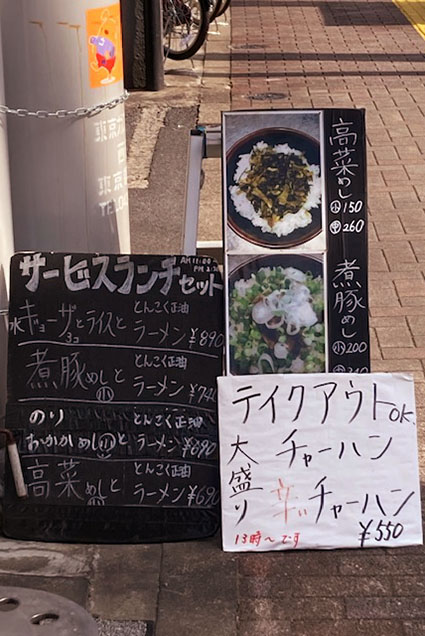 高菜めし
小150
中260
煮豚めし
小200
AM11:00
サービスランチセット
水ギョーザとライスと
3コ
とんこく正油
ラーメン ¥890
煮豚めしと
小
とんこく正油
ラーメン
のり
わかめし小と
とんこく正油
ラーメン ¥690
高菜めしと
とんこく正油
ラーメン ¥690
テイクアウトOK.
大盛り
チャーハン
辛いチャーハン
¥550
13時〜です